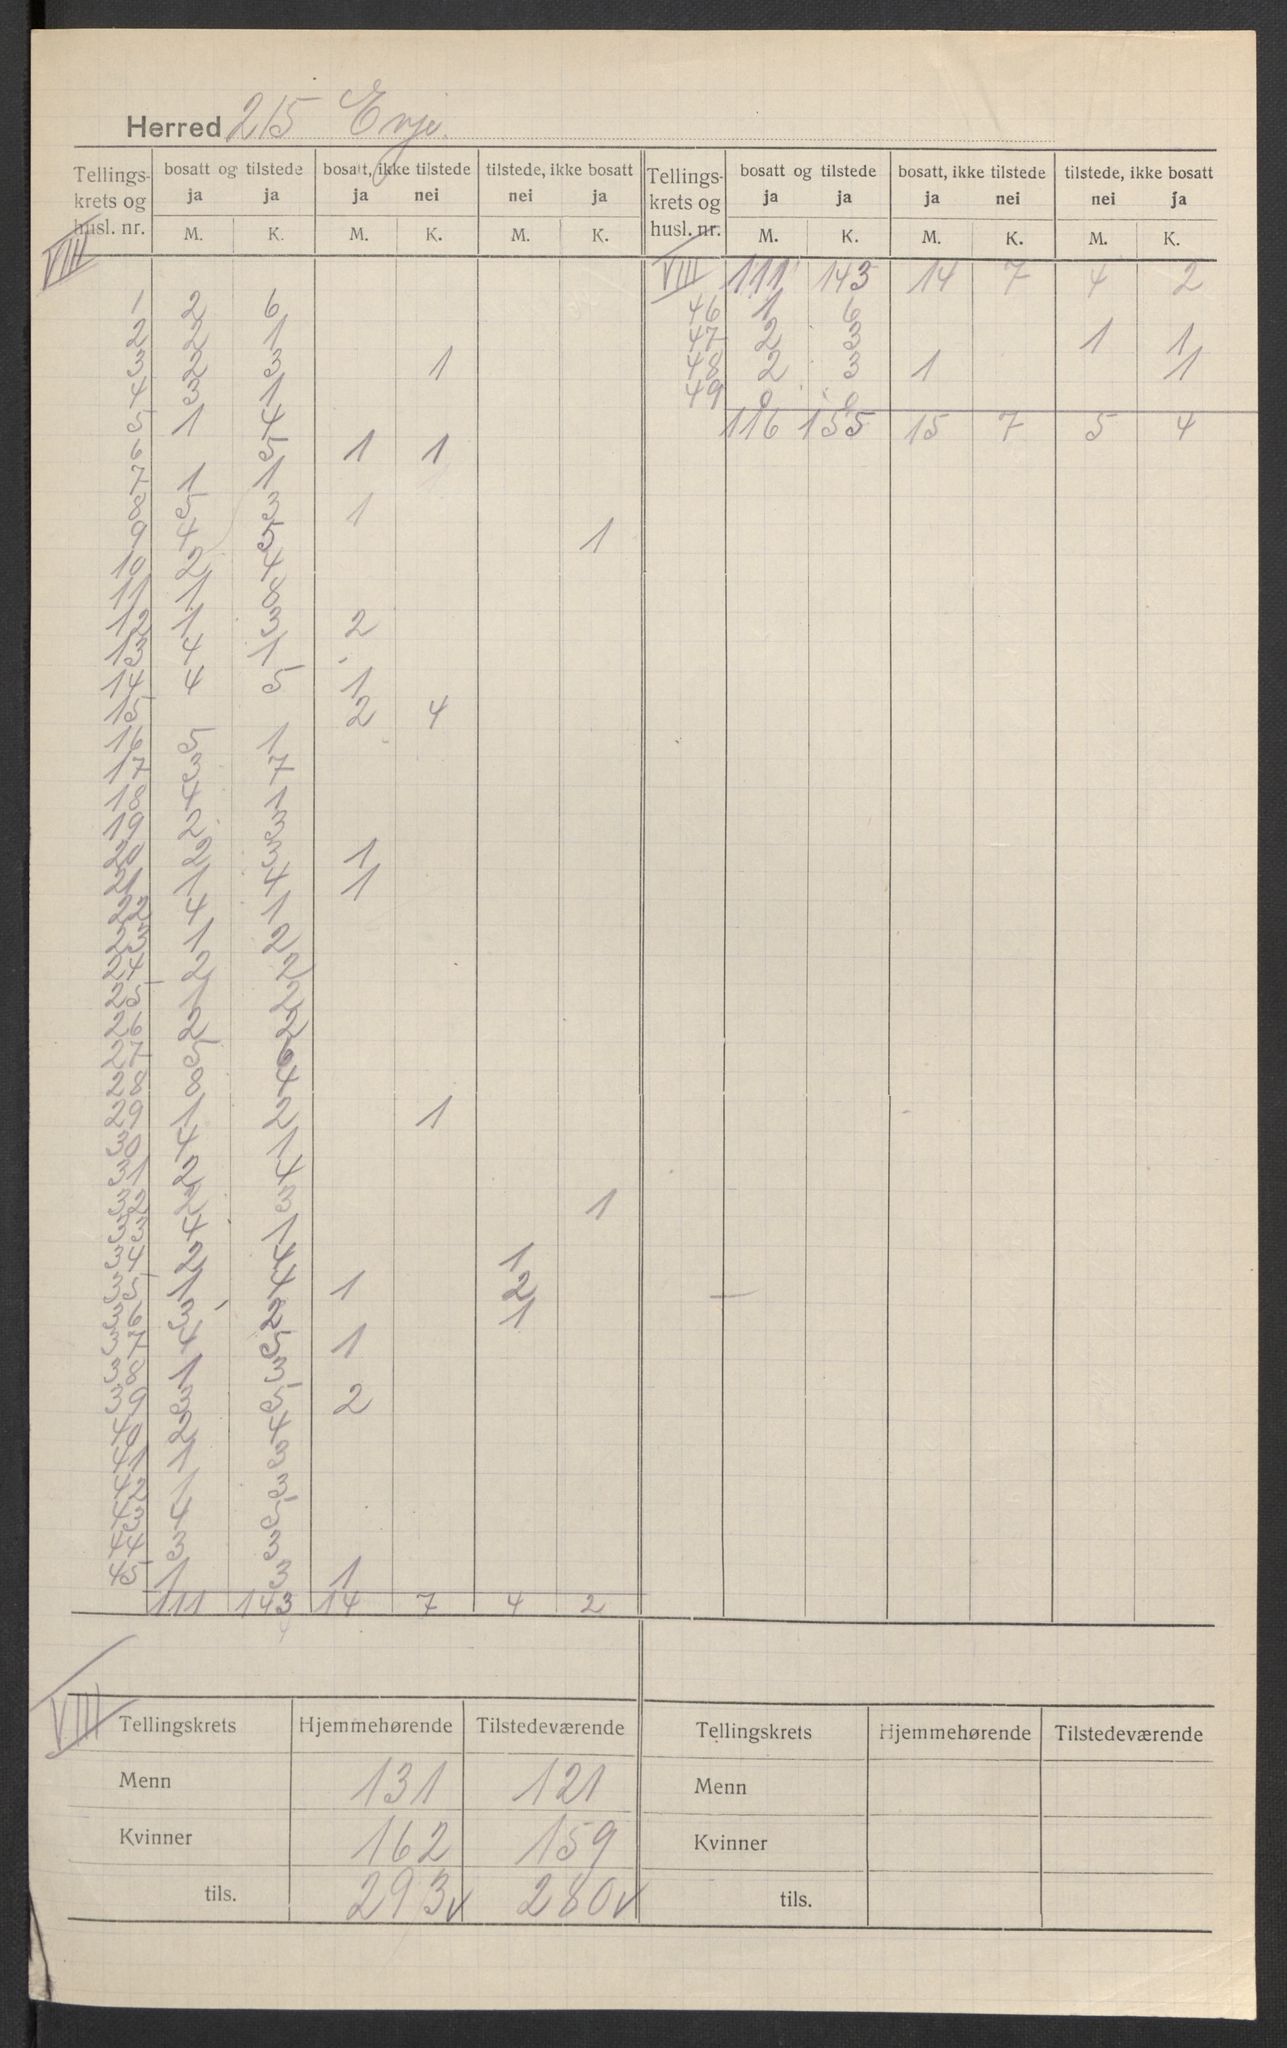 Herred 215 Evje.
Tellings-krets og husl. nr. | bosatt og tilstede ja ja M. K. | bosatt, ikke tilstede ja nei M. K. | tilstede, ikke bosatt nei ja M. K. | Tellings-krets og husl. nr. | bosatt og tilstede ja ja M. K. | bosatt, ikke tilstede ja nei M. K. | tilstede, ikke bosatt nei ja M. K.
VIII
1 2 6
2 2 1
3 2 3 1
4 3 1
5 1 4
6 5 1 1
7 1 1
8 5 3 1
9 4 5 1
10 2 4
11 1 8
12 1 3 2
13 4 1
14 4 5 1
15 2 4
16 5 1
17 3 7
18 4 1
19 2 3
20 2 3 1
21 1 4 1
22 4 1
23 1 2
24 2 2
25 1 2
26 2 2
27 5 6
28 8 4
29 1 2 1
30 4 1
31 2 4
32 2 3 1
33 4 1
34 2 4 1
35 1 4 1 2
36 3 2 1
37 4 5 1
38 1 3
39 3 5 2
40 2 4
41 1 3
42 1 3
43 4 5
44 3 3
45 1 3 1
111 143 14 7 4 2
VIII 111 143 14 7 4 2
46 1 6
47 2 3 1 1
48 2 3 1 1
49 0 0
116 155 15 7 5 4
VIII
Tellingskrets | Hjemmehørende | Tilstedeværende | Tellingskrets | Hjemmehørende | Tilstedeværende
Menn 131 121 Menn
Kvinner 162 159 Kvinner
tils. 293 v 280 v tils.